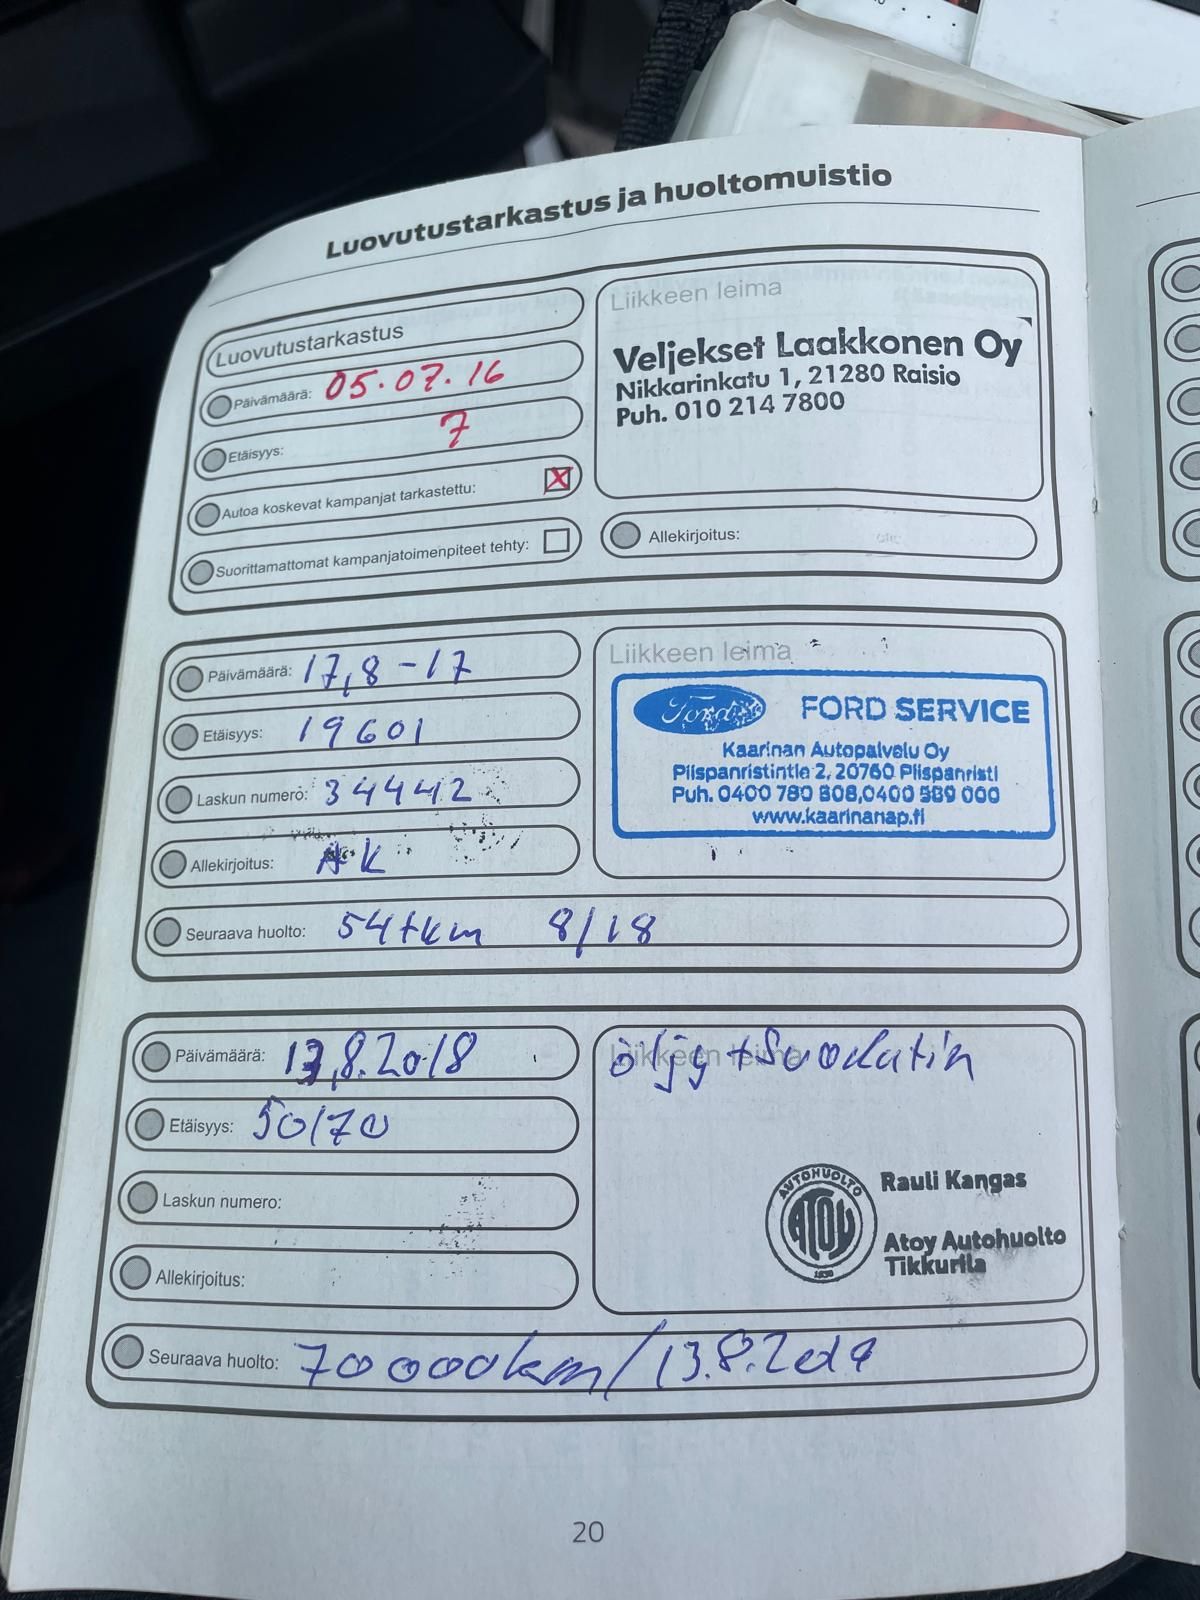 Luovutustarkastus ja huoltomuistio
Luovutustarkastus
Päivämäärä: 05.07.16
Etäisyys: 7
Autoa koskevat kampanjat tarkastettu: X
Suorittamattomat kampanjatoimenpiteet tehty:
Liikkeen leima
Veljekset Laakkonen Oy
Nikkarinkatu 1, 21280 Raisio
Puh. 010 214 7800
Allekirjoitus:
Päivämäärä: 17,8-17
Etäisyys: 19601
Laskun numero: 34442
Allekirjoitus: AK
Liikkeen leima
Ford FORD SERVICE
Kaarinan Autopalvelu Oy
Piispanristintie 2, 20760 Piispanristi
Puh. 0400 780 808,0400 589 000
www.kaarinanap.fi
Seuraava huolto: 54tkm 8/18
Päivämäärä: 13,8.2018
Etäisyys: 50170
Laskun numero:
Allekirjoitus:
Liikkeen leima
öljy + suodatin
AUTOHUOLTO
ATOY
1930
Rauli Kangas
Atoy Autohuolto
Tikkurila
Seuraava huolto: 70000km/13.8.2019
20